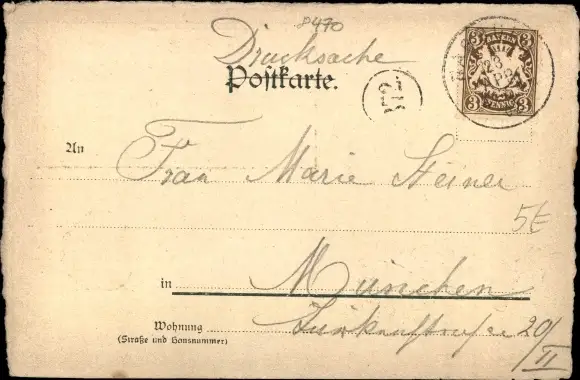 2470
Drucksache
Postkarte.
BAYERN
3 3
3 PFENNIG 3
28
An
Frau Marie Steiner
5€
in München
Wohnung
20/II
(Straße und Hausnummer)